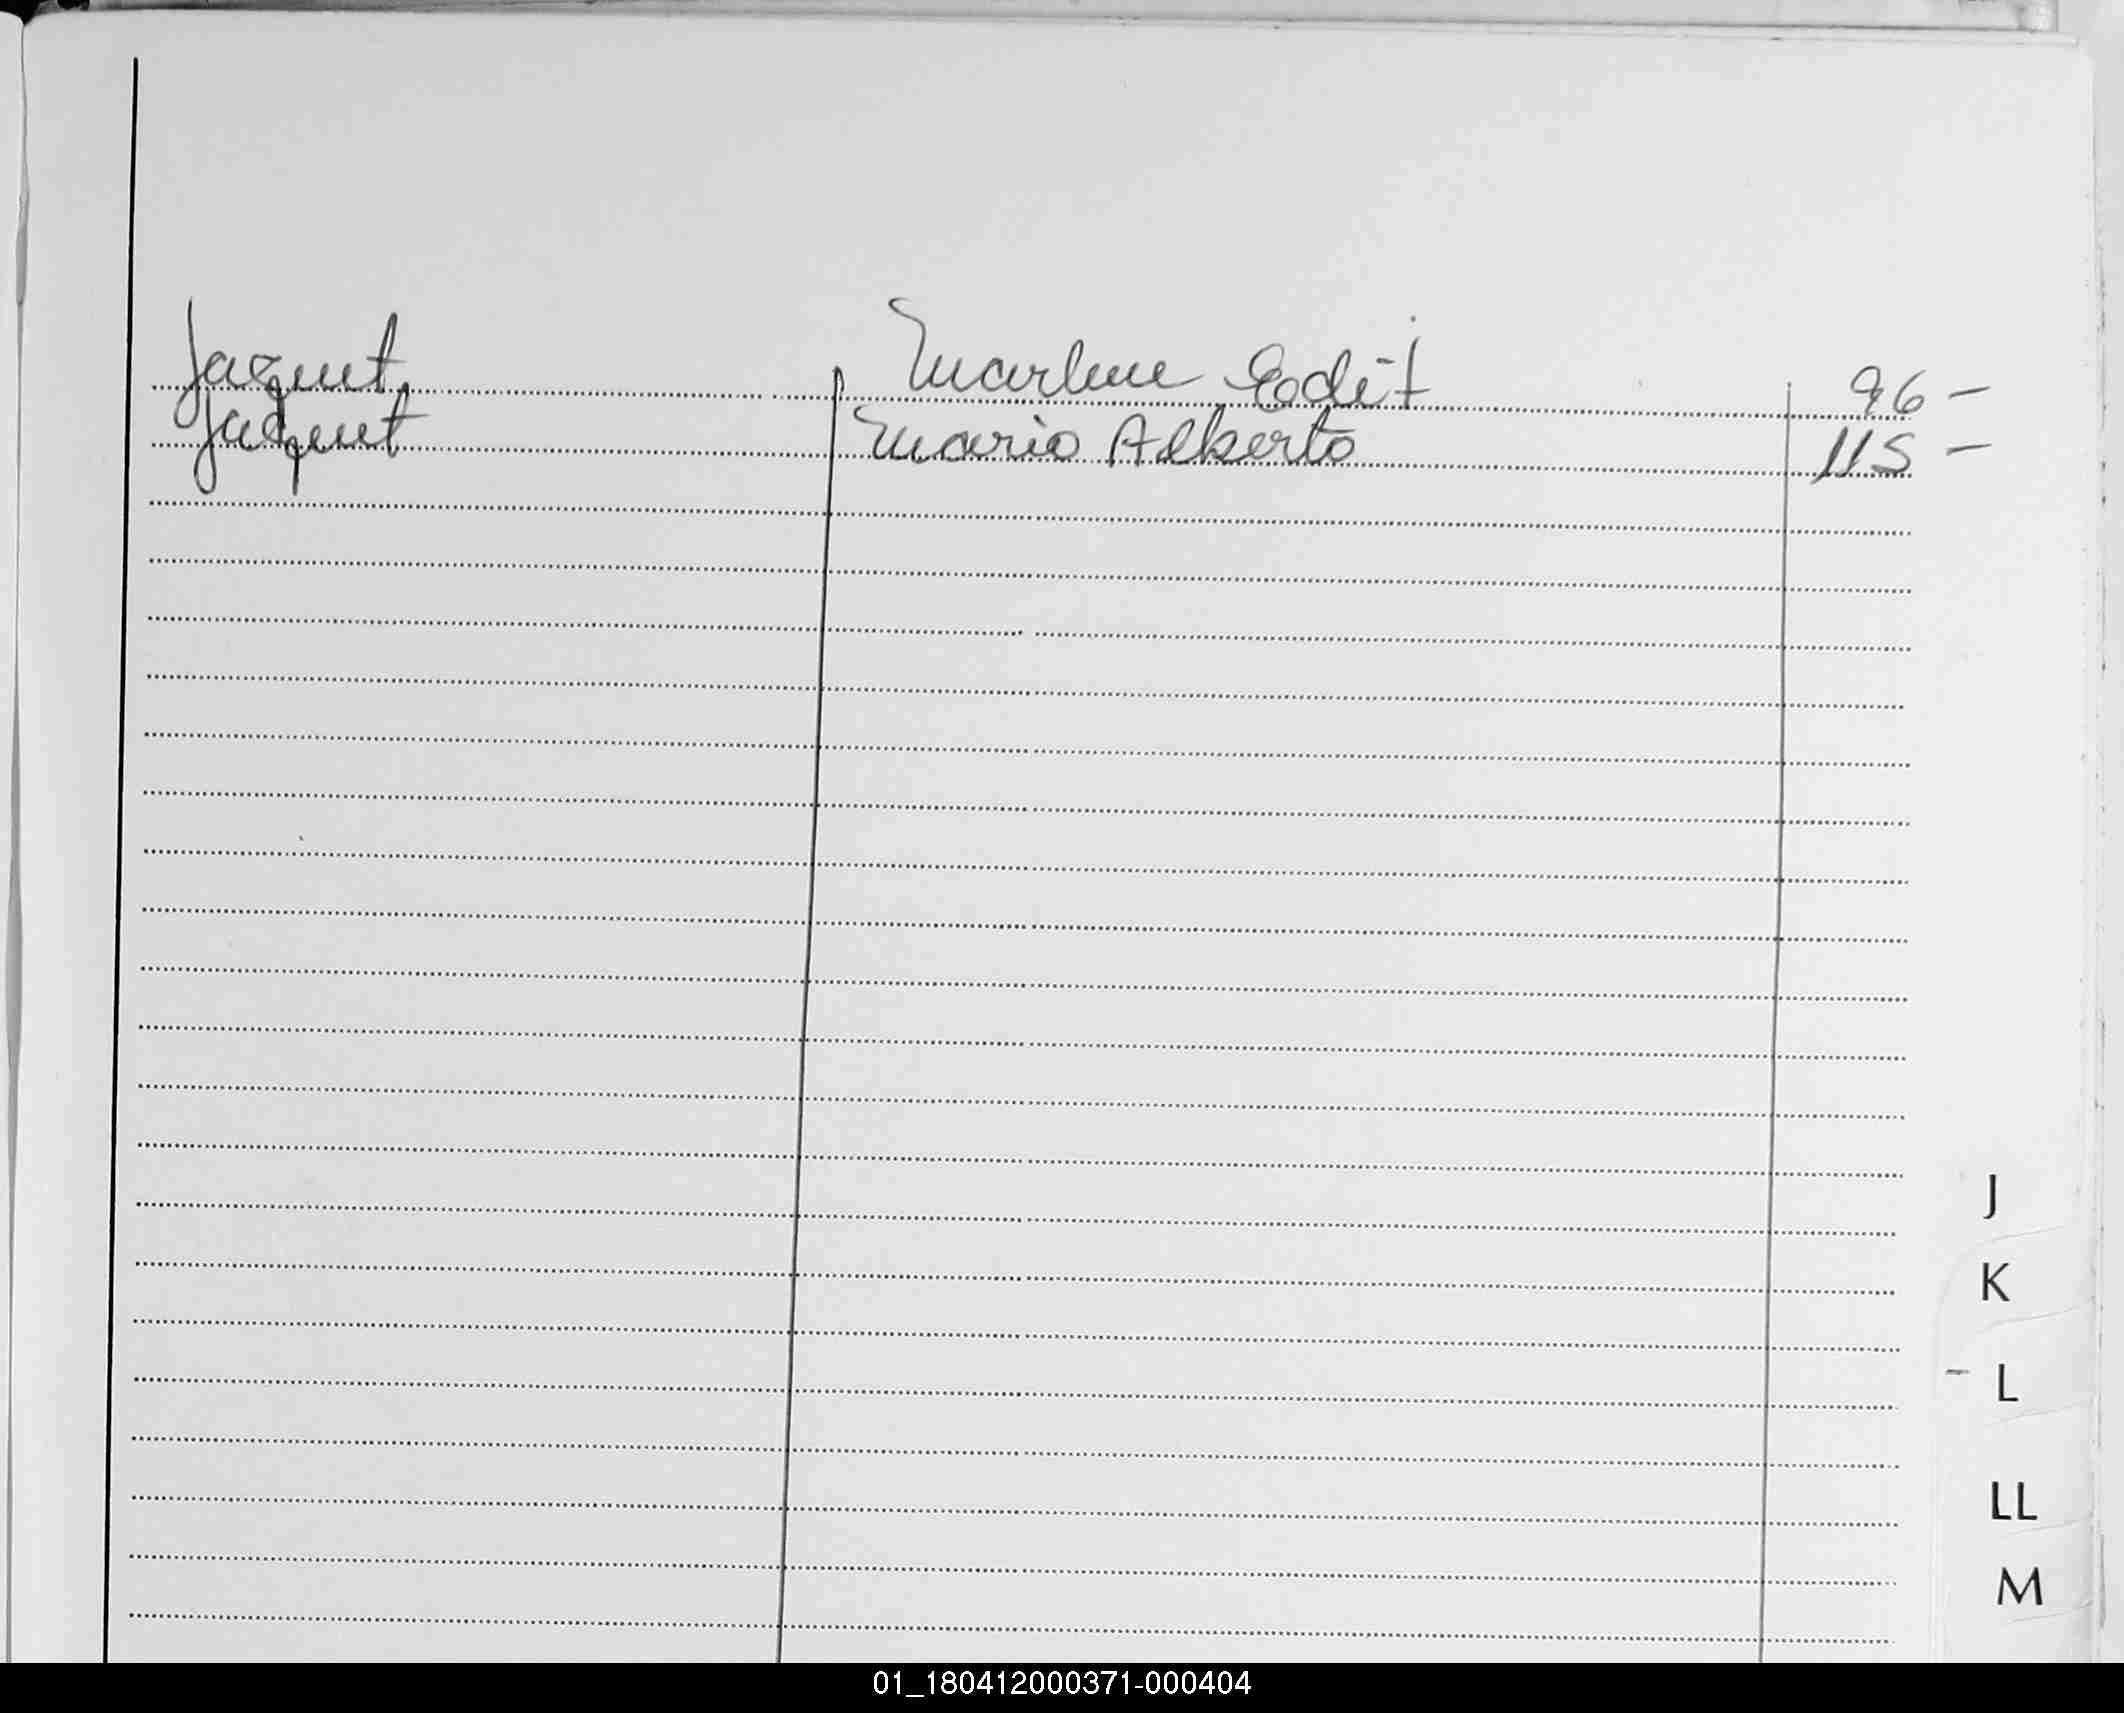 Jaquet Marlene Edit 96 -
Jaquet Mario Alberto 115 -
J
K
- L
LL
M
01_180412000371-000404